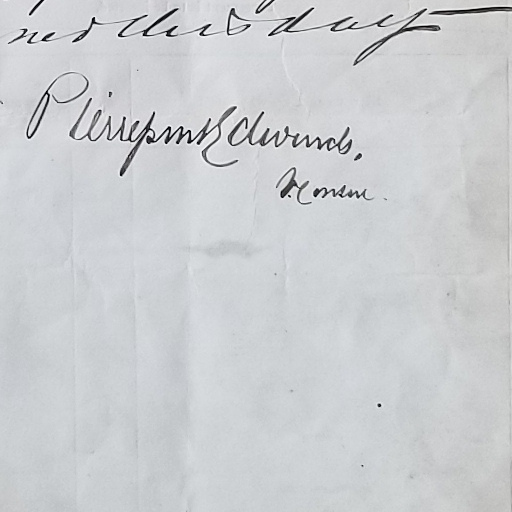 ned this day
Pierrepont Edwards,
V. Consul.